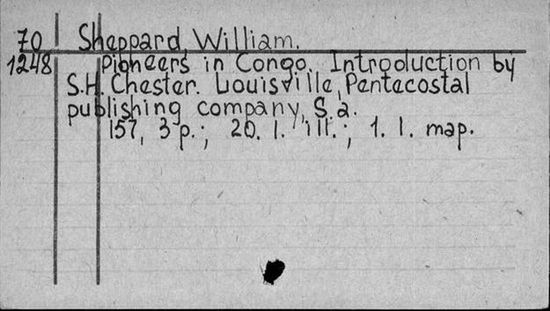 70 Sheppard, William.
1248 Pioneers in Congo. Introduction by
S.H. Chester. Louisville, Pentecostal
publishing company, S.a.
157, 3 p.; 20. l. ill.; 1. l. map.